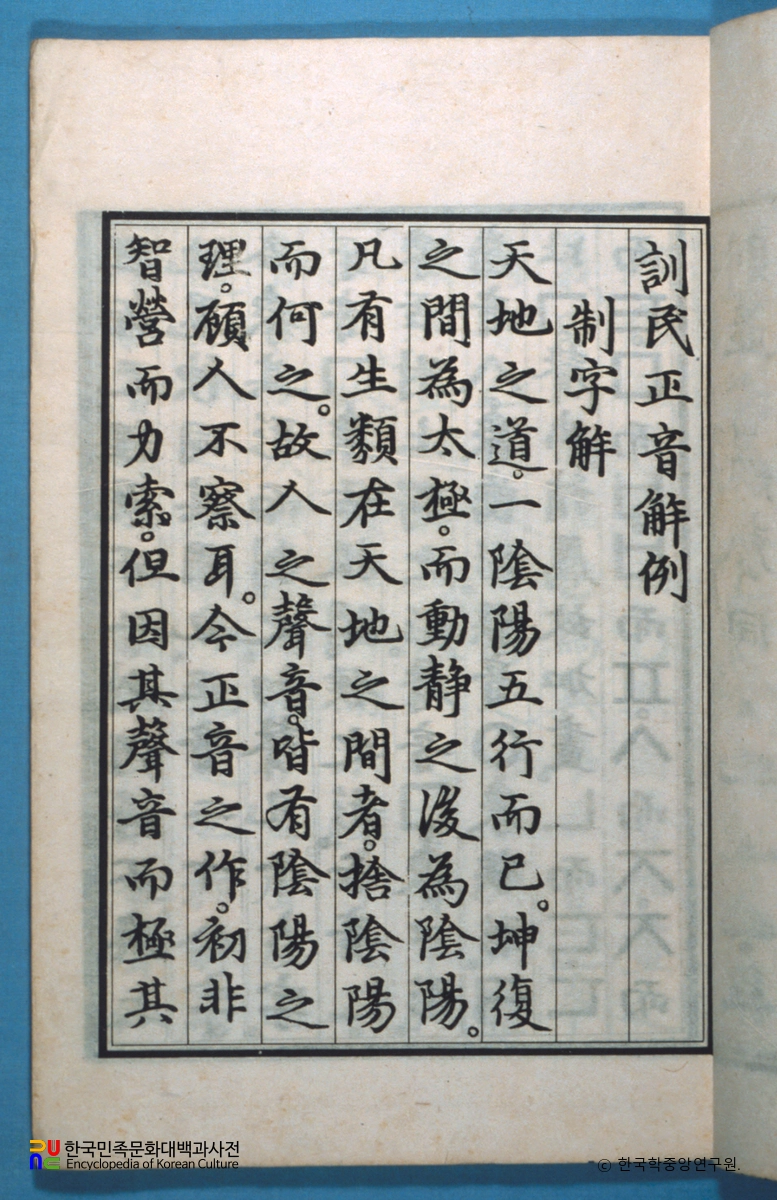 訓民正音解例
制字解
天地之道。一陰陽五行而已。坤復
之間為太極。而動静之後為陰陽。
凡有生類在天地之間者。捨陰陽
而何之。故人之聲音。皆有陰陽之
理。顧人不察耳。今正音之作。初非
智營而力索。但因其聲音而極其
한국민족문화대백과사전
Encyclopedia of Korean Culture
© 한국학중앙연구원.